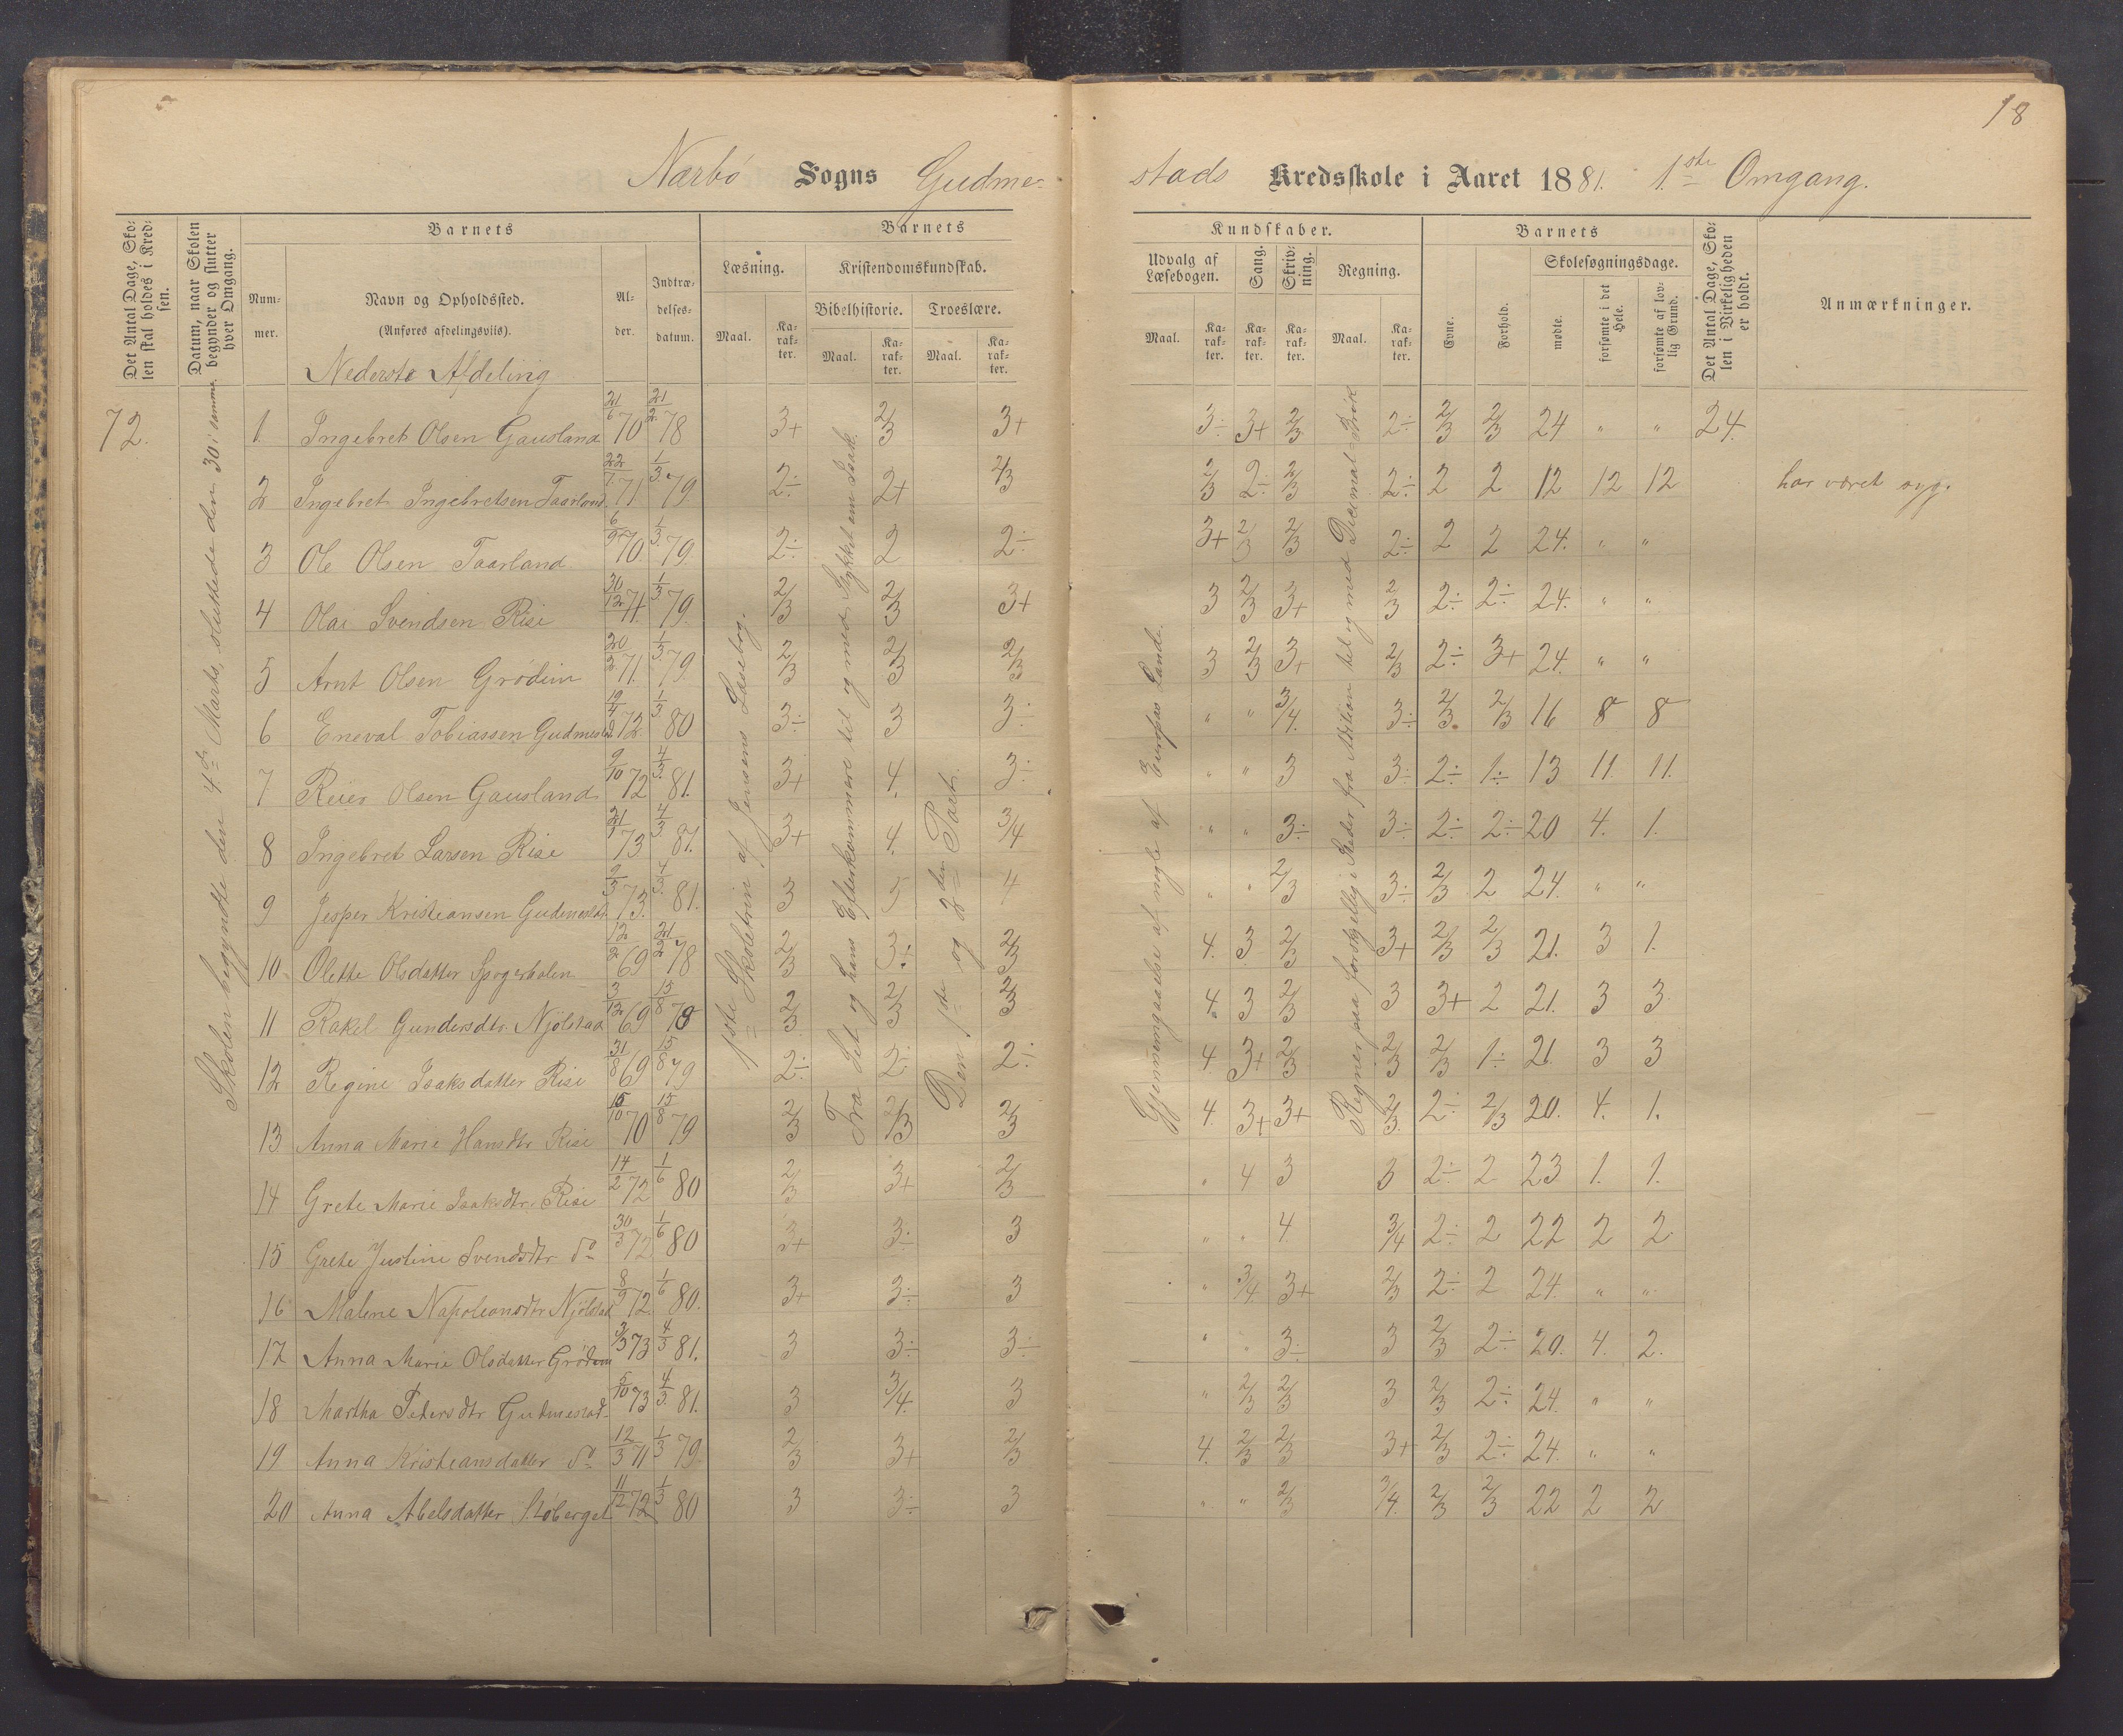 18
Nærbø Sogns Gudme-
stads Kredsskole i Aaret 1881. 1.ste Omgang.
Det Antal Dage, Sko-
len skal holdes i Kred-
sen.
Datum, naar Skolen
begynder og slutter
hver Omgang.
Barnets
Num-
mer.
Navn og Opholdssted.
(Anføres afdelingsviis).
Al-
der.
Indtræ-
delses-
datum.
Barnets
Læsning.
Kristendomskundskab.
Bibelhistorie.
Troeslære.
Maal.
Ka-
rak-
ter.
Maal.
Ka-
rak-
ter.
Maal.
Ka-
rak-
ter.
Kundskaber.
Udvalg af
Læsebogen.
Sang.
Skriv-
ning.
Regning.
Maal.
Ka-
rak-
ter.
Ka-
rak-
ter.
Ka-
rak-
ter.
Maal.
Ka-
rak-
ter.
Barnets
Evne.
Forhold.
Skolesøgningsdage.
mødte.
forsømte i det
Hele.
forsømte af lov-
lig Grund.
Det Antal Dage, Sko-
len i Virkeligheden
er holdt.
Anmærkninger.
Nederste Afdeling
72.
Skolen begyndte den 4de Marts, sluttede den 30 i samme.
1ste Skoletrin af Jensens Læsebog.
Fra Set og hans Efterkommere til og med Stykket om Isak.
Den 1ste og 2den Part.
Gjennemgaaelse af nogle af Europas Lande.
Regner paa forskjellig Steder fra Addition til og med Decimal-Brøk
1. Ingebret Olsen Gausland 21/6 70 21/2 78 3+ 2/3 3+ 3÷ 3+ 2/3 2÷ 2/3 2/3 24 " " 24.
2 Ingebret Ingebretsen Taarland 22/7 71 1/3 79 2÷ 2+ 2/3 2/3 2÷ 2/3 2÷ 2 2 12 12 12 har været syg.
3 Ole Olsen Taarland 6/9 70. 1/3 79. 2÷ 2 2÷ 3+ 2/3 2/3 2÷ 2 2 24. " "
4 Olai Svendsen Risi 30/12 71. 1/3 79. 2/3 2/3 3+ 3 2/3 3+ 2/3 2÷ 2÷ 24. " "
5 Arnt Olsen Grødim 20/2 71. 1/3 79. 2/3 2/3 2/3 3 2/3 3+ 2/3 2÷ 3+ 24. " "
6 Eneval Tobiassen Gudmestad 19/4 72. 1/3 80 3÷ 3 3÷ " " 3/4. 3÷ 2/3. 2/3 16 8 8
7 Reier Olsen Gausland 9/10 72 4/3 81. 3+ 4. 3÷ " " 3 3÷ 2÷ 1÷ 13 11. 11.
8 Ingebret Larsen Risi 21/1 73 4/3 81. 3+ 4. 3/4 " " 3÷ 3÷ 2÷ 2÷ 20 4. 1.
9 Jesper Kristiansen Gudmestad 9/3 73. 4/3 81. 3 5 4 " " 2/3 3÷ 2/3 2 24. " "
10 Olette Olsdatter 12/2 69 21/2 78 2/3 3÷ 2/3 4. 3 2/3 3+ 2/3 2/3 21. 3 1.
11 Rakel Gundersdtr. Njølstad 3/12 69 15/8 78 2/3 2/3 2/3 4. 3 2/3 3 3+ 2 21. 3 3
12 Regine Isaksdatter Risi 31/8 69 15/8 79 2÷ 2÷ 2÷ 4 3+ 2/3 2/3 2/3 1÷ 21. 3 3
13 Anna Marie Hansdtr Risi 15/10 70 15/8 79 2/3 2/3 2/3 4. 3+ 3+ 2/3. 2÷ 2/3 20. 4. 1.
14 Grete Marie Isaksdtr. Risi 14/2 72 1/6 80 2/3 3+ 2/3 " 4 3 3 2÷ 2 23 1. 1.
15 Grete Justine Svendsdtr do 30/3 72 1/6 80 3+ 3÷ 3 " " 4. 3/4 2÷ 2 22 2 2
16 Malene Napoleonsdtr Njølstad 8/9 72. 1/6 80. 3+ 3÷ 3 " 3/4. 3+ 2/3 2÷ 2 24. " "
17 Anna Marie Olsdatter Grødem 3/3 73 4/3 81. 3 3÷ 3÷ " " 3÷ 3 2/3 2÷ 20. 4. 2.
18 Martha Petersdtr Gudmestad 5/10 73 4/3 81. 3 3/4. 3 " 2/3 2/3 3 2/3 2÷ 24. " "
19 Anna Kristiansdatter do 12/3 71 1/3 79 2/3 3+ 2/3 4. 2/3 2/3 3+ 2/3 2÷ 24. " "
20 Anna Abelsdatter 11/12 72 1/3 80 3 3÷ 3 " " 2/3 3/4. 2/3 2/3 22 2 2